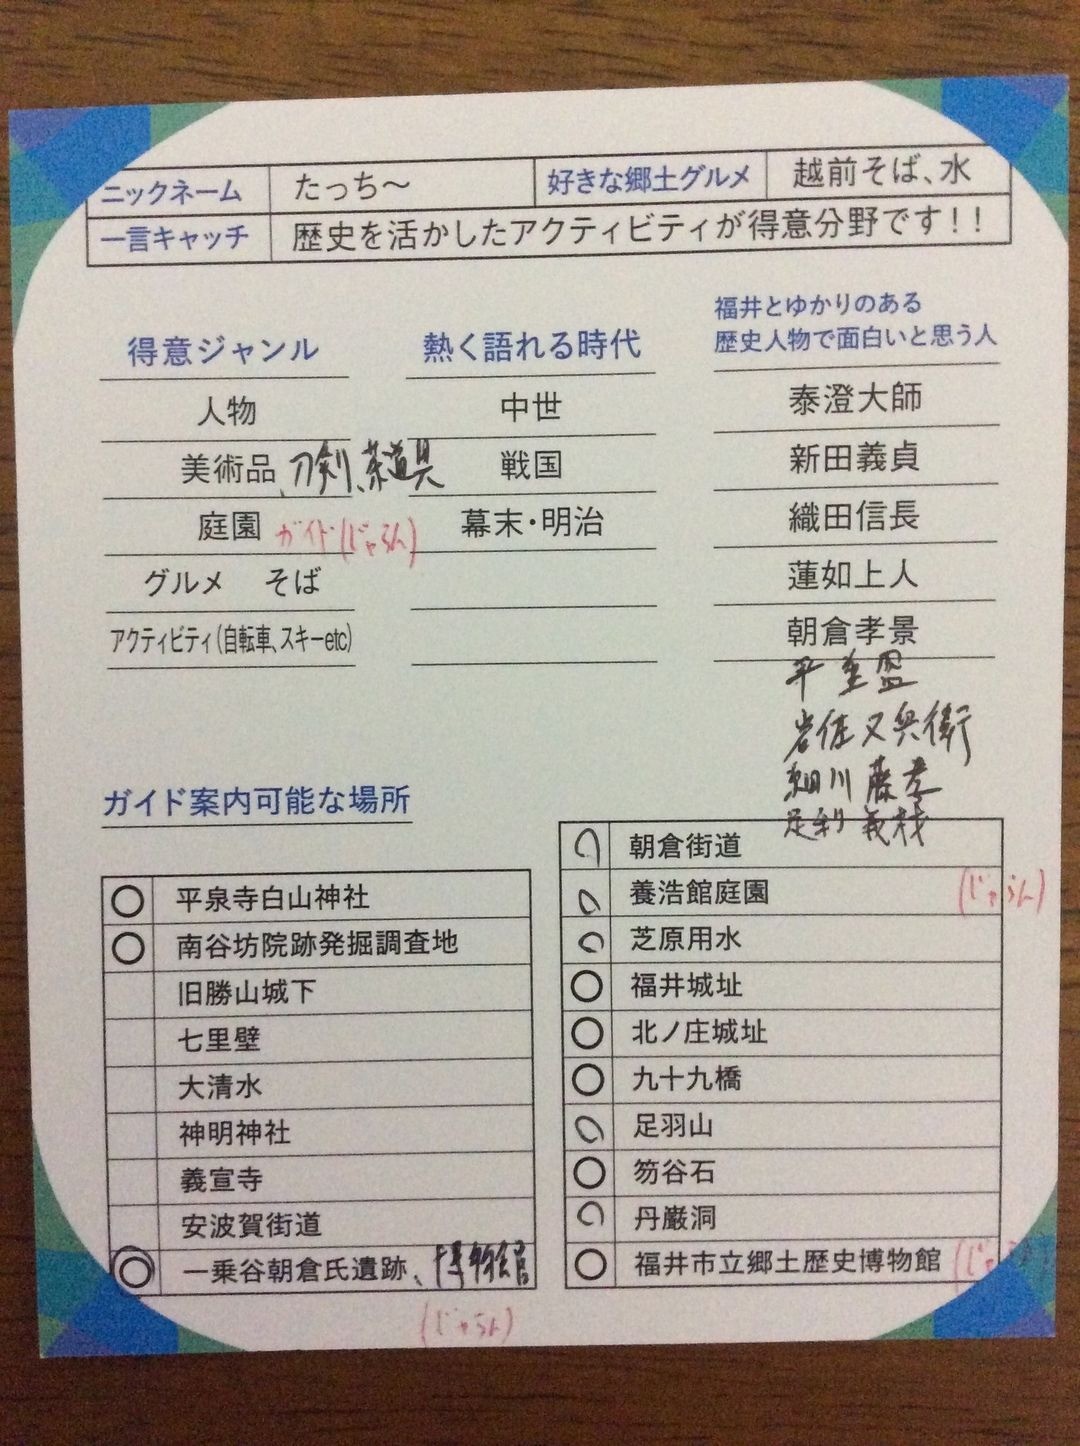 ニックネーム たっち～ 好きな郷土グルメ 越前そば、水
一言キャッチ 歴史を活かしたアクティビティが得意分野です！！
得意ジャンル
人物
美術品、刀剣、茶道具
庭園 ガイド(じゃらん)
グルメ そば
アクティビティ(自転車、スキーetc)
熱く語れる時代
中世
戦国
幕末・明治
福井とゆかりのある
歴史人物で面白いと思う人
泰澄大師
新田義貞
織田信長
蓮如上人
朝倉孝景
平重盛
岩佐又兵衛
細川藤孝
足利義材
ガイド案内可能な場所
○ 平泉寺白山神社
○ 南谷坊院跡発掘調査地
旧勝山城下
七里壁
大清水
神明神社
義宣寺
安波賀街道
◎ 一乗谷朝倉氏遺跡、博物館
(じゃらん)
○ 朝倉街道
○ 養浩館庭園 (じゃらん)
○ 芝原用水
○ 福井城址
○ 北ノ庄城址
○ 九十九橋
○ 足羽山
○ 笏谷石
○ 丹巌洞
○ 福井市立郷土歴史博物館